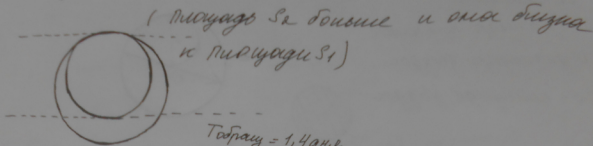 ( площадь S₂ больше и она близка
к площади S₁)
Tобращ = 1,4 дня